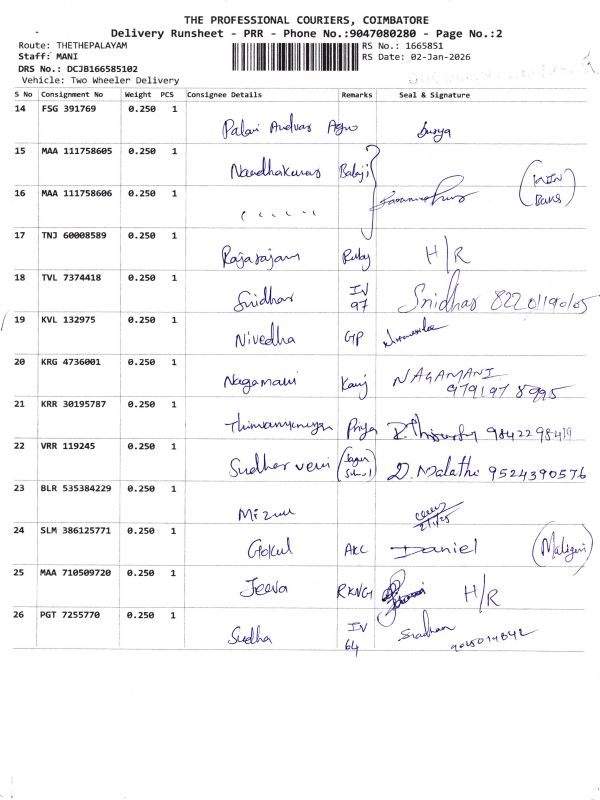 THE PROFESSIONAL COURIERS, COIMBATORE
Delivery Runsheet - PRR - Phone No.:9047080280 - Page No.:2
Route: THETHEPALAYAM RS No.: 1665851
Staff: MANI RS Date: 02-Jan-2026
DRS No.: DCJB166585102
Vehicle: Two Wheeler Delivery
S No Consignment No Weight PCS Consignee Details Remarks Seal & Signature
14 FSG 391769 0.250 1 Palani Andvar Agro Surya
15 MAA 111758605 0.250 1 Nandhakumar Balaji
16 MAA 111758606 0.250 1
17 TNJ 60008589 0.250 1 Rajarajan Ruby H/R
18 TVL 7374418 0.250 1 Sridhar IV 97 Sridhar 8220119005
19 KVL 132975 0.250 1 Nivedha GP
20 KRG 4736001 0.250 1 Nagamani NAGAMANI 9791978995
21 KRR 30195787 0.250 1 Priya 9842298419
22 VRR 119245 0.250 1 Sudharveni D. Malathi 9524390576
23 BLR 535384229 0.250 1
24 SLM 386125771 0.250 1 Gokul AKC Daniel
25 MAA 710509720 0.250 1 Jeeva RKNG H/R
26 PGT 7255770 0.250 1 Sudha IV 64